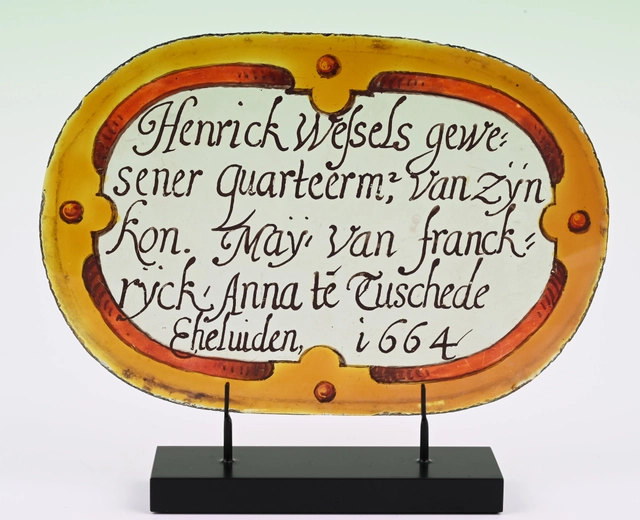 Henrick Wessels gewe⸗
sener quarteerm², van zÿn
kon. Maÿ. van franck⸗
rÿck. Anna te Tuschede
Eheluiden, i664